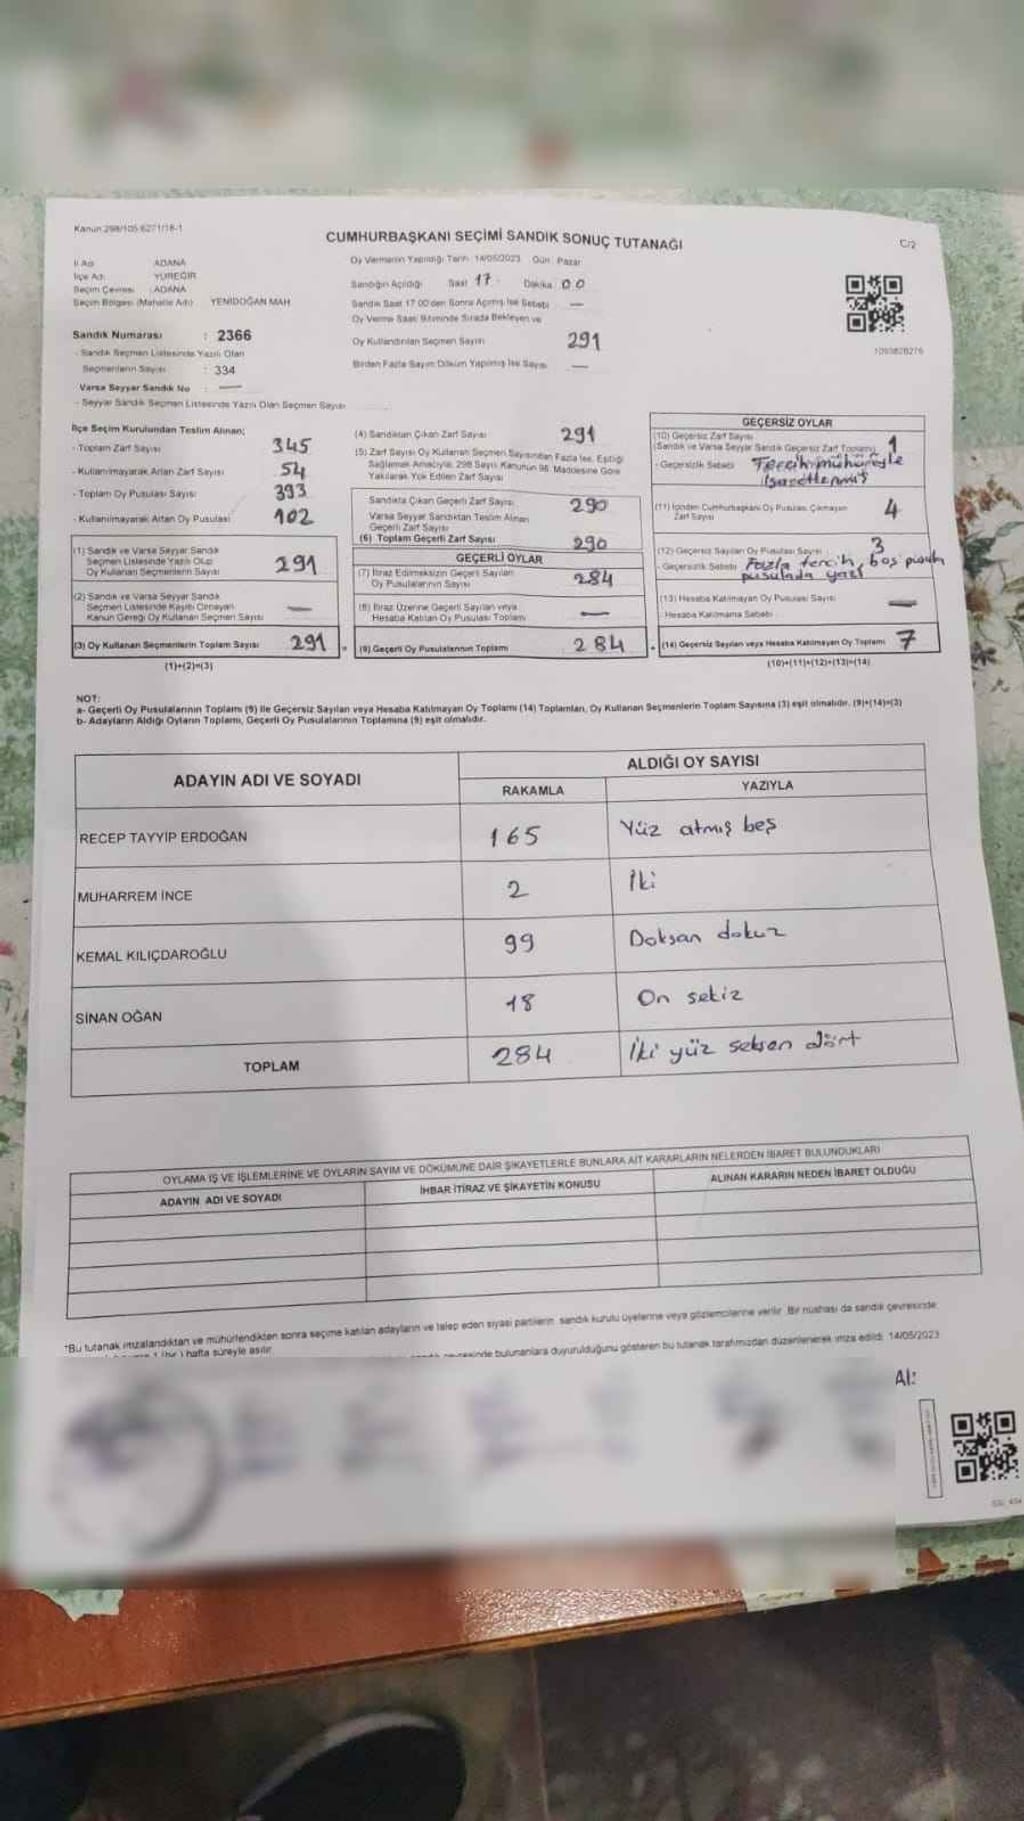 Kanun 298/105 6271/18-1
CUMHURBAŞKANI SEÇİMİ SANDIK SONUÇ TUTANAĞI
C/2
İl Adı ADANA
İlçe Adı YÜREĞİR
Seçim Çevresi ADANA
Seçim Bölgesi (Mahalle Adı) YENİDOĞAN MAH
Sandık Numarası : 2366
- Sandık Seçmen Listesinde Yazılı Olan
Seçmenlerin Sayısı : 334
Varsa Seyyar Sandık No : —
- Seyyar Sandık Seçmen Listesinde Yazılı Olan Seçmen Sayısı
Oy Vermenin Yapıldığı Tarih 14/05/2023 Gün Pazar
Sandığın Açıldığı Saat 17 Dakika 00
Sandık Saat 17 00'den Sonra Açılmış İse Sebebi —
Oy Verme Saati Bitiminde Sırada Bekleyen ve
Oy Kullandırılan Seçmen Sayısı 291
Birden Fazla Sayım Döküm Yapılmış İse Sayısı —
İlçe Seçim Kurulundan Teslim Alınan;
- Toplam Zarf Sayısı 345
- Kullanılmayarak Artan Zarf Sayısı 54
- Toplam Oy Pusulası Sayısı 393
- Kullanılmayarak Artan Oy Pusulası 102
(1) Sandık ve Varsa Seyyar Sandık
Seçmen Listesinde Yazılı Olup
Oy Kullanan Seçmenlerin Sayısı 291
(2) Sandık ve Varsa Seyyar Sandık
Seçmen Listesinde Kayıtlı Olmayan
Kanun Gereği Oy Kullanan Seçmen Sayısı —
(3) Oy Kullanan Seçmenlerin Toplam Sayısı 291
(1)+(2)=(3)
(4) Sandıktan Çıkan Zarf Sayısı 291
(5) Zarf Sayısı Oy Kullanan Seçmen Sayısından Fazla İse, Eşitliği
Sağlamak Amacıyla, 298 Sayılı Kanunun 98. Maddesine Göre
Yakılarak Yok Edilen Zarf Sayısı
Sandıkta Çıkan Geçerli Zarf Sayısı 290
Varsa Seyyar Sandıktan Teslim Alınan
Geçerli Zarf Sayısı
(6) Toplam Geçerli Zarf Sayısı 290
GEÇERLİ OYLAR
(7) İtiraz Edilmeksizin Geçerli Sayılan
Oy Pusulalarının Sayısı 284
(8) İtiraz Üzerine Geçerli Sayılan veya
Hesaba Katılan Oy Pusulası Toplamı —
(9) Geçerli Oy Pusulalarının Toplamı 284
GEÇERSİZ OYLAR
(10) Geçersiz Zarf Sayısı
(Sandık ve Varsa Seyyar Sandık Geçersiz Zarf Toplamı) 1
- Geçersizlik Sebebi Tercih mühürüyle
işaretlenmiş
(11) İçinden Cumhurbaşkanı Oy Pusulası Çıkmayan
Zarf Sayısı 4
(12) Geçersiz Sayılan Oy Pusulası Sayısı 3
- Geçersizlik Sebebi Fazla tercih, boş pusula
pusulada yazı
(13) Hesaba Katılmayan Oy Pusulası Sayısı —
Hesaba Katılmama Sebebi
(14) Geçersiz Sayılan veya Hesaba Katılmayan Oy Toplamı 7
(10)+(11)+(12)+(13)=(14)
NOT:
a- Geçerli Oy Pusulalarının Toplamı (9) ile Geçersiz Sayılan veya Hesaba Katılmayan Oy Toplamı (14) Toplamları, Oy Kullanan Seçmenlerin Toplam Sayısına (3) eşit olmalıdır. (9)+(14)=(3)
b- Adayların Aldığı Oyların Toplamı, Geçerli Oy Pusulalarının Toplamına (9) eşit olmalıdır.
ADAYIN ADI VE SOYADI ALDIĞI OY SAYISI
RAKAMLA YAZIYLA
RECEP TAYYİP ERDOĞAN 165 Yüz atmış beş
MUHARREM İNCE 2 İki
KEMAL KILIÇDAROĞLU 99 Doksan dokuz
SİNAN OĞAN 18 On sekiz
TOPLAM 284 İki yüz seksen dört
OYLAMA İŞ VE İŞLEMLERİNE VE OYLARIN SAYIM VE DÖKÜMÜNE DAİR ŞİKAYETLERLE BUNLARA AİT KARARLARIN NELERDEN İBARET BULUNDUKLARI
ADAYIN ADI VE SOYADI İHBAR İTİRAZ VE ŞİKAYETİN KONUSU ALINAN KARARIN NEDEN İBARET OLDUĞU
*Bu tutanak imzalandıktan ve mühürlendikten sonra seçime katılan adayların ve talep eden siyasi partilerin sandık kurulu üyelerine veya gözlemcilerine verilir. Bir nüshası da sandık çevresinde
1 (bir) hafta süreyle asılır. bulunanlara duyurulduğunu gösteren bu tutanak tarafımızdan düzenlenerek imza edildi. 14/05/2023
Al: